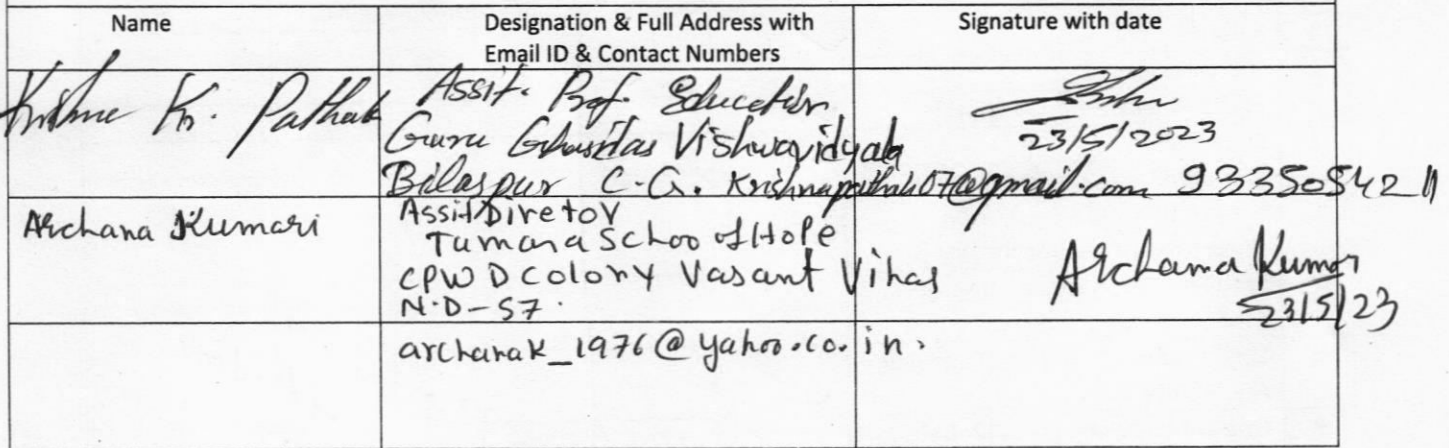 Name
Designation & Full Address with
Email ID & Contact Numbers
Signature with date
Krishna Kr. Pathak
Assit. Prof. Education
Guru Ghasidas Vishwavidyala
Bilaspur C.G. Krishnapathak07@gmail.com 9335054211
23/5/2023
Archana Kumari
Assit Diretor
Tamana School of Hope
CPWD colony Vasant Vihar
N.D-57.
Archana Kumari
23/5/23
archanak_1976@yahoo.co.in.